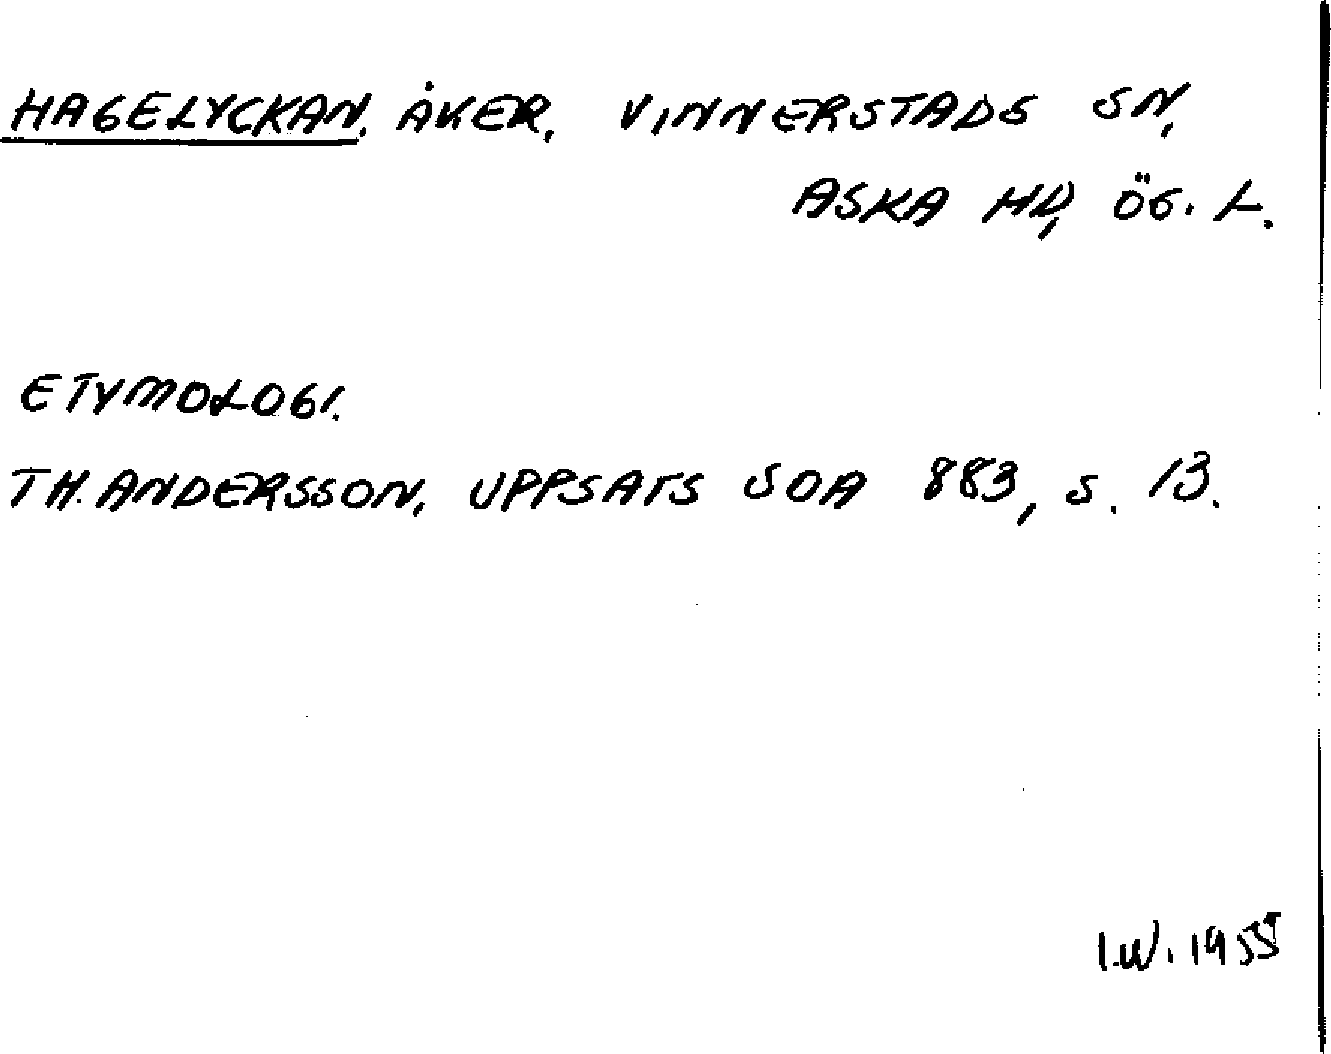 HAGELYCKAN, ÅKER, VINNERSTADS SN,
ASKA HD, ÖG. L.
ETYMOLOGI.
TH. ANDERSSON, UPPSATS SOA 883, s. 13.
I.W. 1955